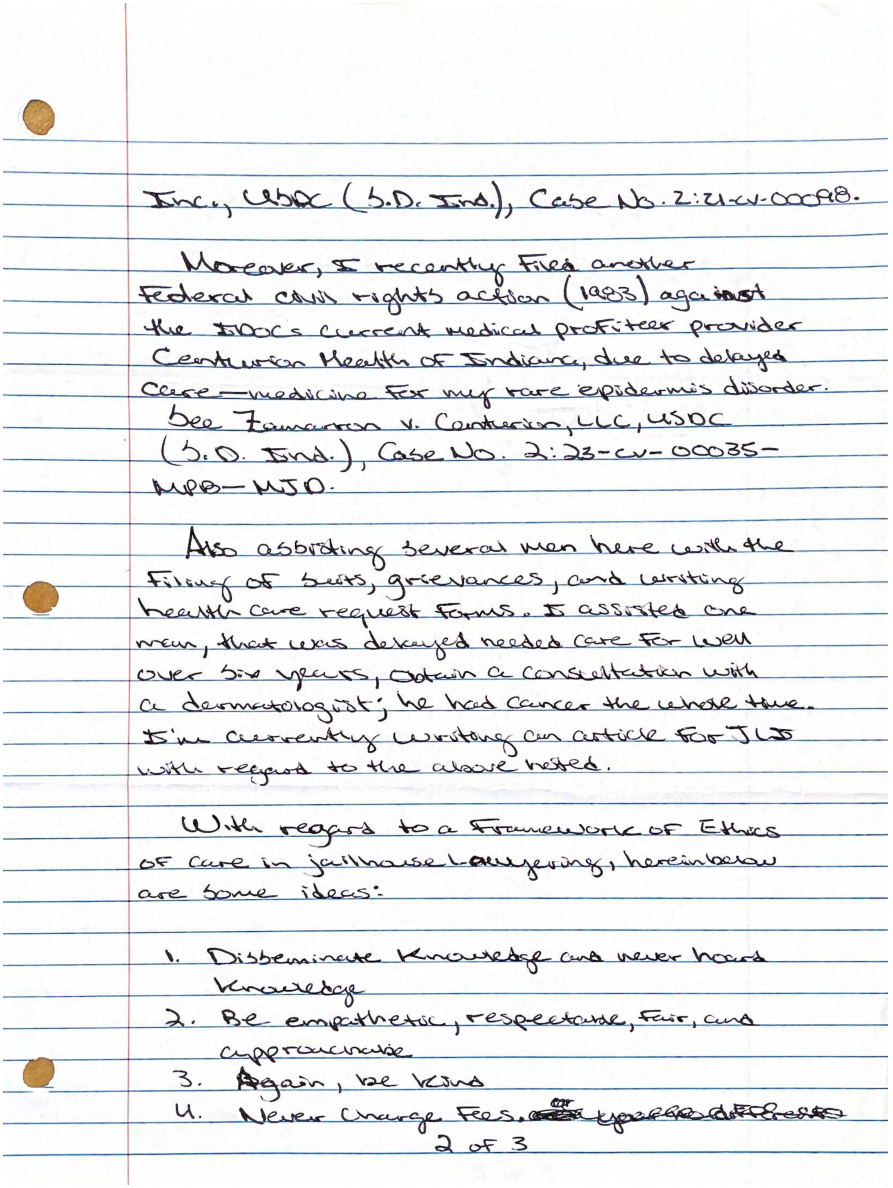 Inc., USDC (S.D. Ind.), Case No. 2:21-cv-00098.
Moreover, I recently filed another
Federal civil rights action (1983) against
the IDOCs current medical profiteer provider
Centurion Health of Indiana, due to delayed
care—medicine for my rare epidermis disorder.
See Zamarron v. Centurion, LLC, USDC
(S.D. Ind.), Case No. 2:23-cv-00035-
MPB-MJD.
Also assisting several men here with the
filing of suits, grievances, and writing
health care request forms. I assisted one
man, that was delayed needed care for well
over six years, obtain a consultation with
a dermatologist; he had cancer the whole time.
I'm currently writing an article for JLI
with regard to the above noted.
With regard to a Framework of Ethics
of care in jailhouse Lawyering, hereinbelow
are some ideas:
1. Disseminate Knowledge and never hoard
Knowledge
2. Be empathetic, respectable, fair, and
approachable
3. Again, be kind
4. Never charge fees.
2 of 3